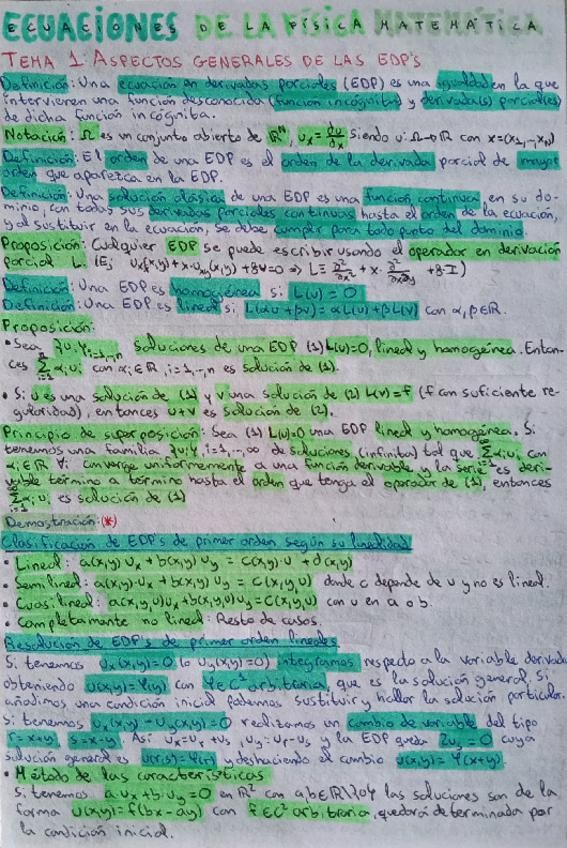 ECUACIONES DE LA FÍSICA MATEMÁTICA
TEMA 1: ASPECTOS GENERALES DE LAS EDP'S
Definición: Una ecuación en derivadas parciales (EDP) es una igualdad en la que
intervienen una función desconocida (función incógnita) y derivada(s) parcial(es)
de dicha función incógnita.
Notación: Ω es un conjunto abierto de ℝᴺ, uₓ = ∂u/∂x siendo u: Ω→ℝ con x=(x₁,..,x_N)
Definición: El orden de una EDP es el orden de la derivada parcial de mayor
orden que aparezca en la EDP.
Definición: Una solución clásica de una EDP es una función continua en su do-
minio, con todas sus derivadas parciales continuas hasta el orden de la ecuación,
y al sustituir en la ecuación, se debe cumplir para todo punto del dominio.
Proposición: Cualquier EDP se puede escribir usando el operador en derivación
parcial L.
Definición: Una EDP es homogénea si L(u) = 0
Definición: Una EDP es lineal si L(αu + βv) = αL(u) + βL(v) con α, β∈ℝ.
Proposición:
• Sea {uᵢ}ᵢ₌₁,..,ₙ soluciones de una EDP (1) L(u)=0, lineal y homogénea. Enton-
ces Σαᵢuᵢ con αᵢ∈ℝ, i=1,..,n es solución de (1).
• Si u es una solución de (1) y v una solución de (2) L(v)=f (f con suficiente re-
gularidad), entonces u+v es solución de (2).
Principio de superposición: Sea (1) L(u)=0 una EDP lineal y homogénea. Si
tenemos una familia {uᵢ}, i=1,..,∞ de soluciones (infinita) tal que Σαᵢuᵢ con
αᵢ∈ℝ ∀i converge uniformemente a una función derivable y la serie es deri-
vable término a término hasta el orden que tenga el operador de (1), entonces
Σαᵢuᵢ es solución de (1)
Demostración: (*)
Clasificación de EDP's de primer orden según su linealidad
• Lineal: a(x,y)uₓ + b(x,y)u_y = c(x,y)·u + d(x,y)
• Semilineal: a(x,y)·uₓ + b(x,y)u_y = c(x,y,u) donde c depende de u y no es lineal.
• Cuasilineal: a(x,y,u)uₓ + b(x,y,u)u_y = c(x,y,u) con u en a o b.
• Completamente no lineal: Resto de casos.
Resolución de EDP's de primer orden lineales
Si tenemos uₓ(x,y)=0 (o u_y(x,y)=0) integramos respecto a la variable derivada
obteniendo u(x,y)=φ(y) con φ∈C¹ arbitraria, que es la solución general. Si
añadimos una condición inicial podemos sustituir y hallar la solución particular.
Si tenemos uₓ(x,y) - u_y(x,y)=0 realizamos un cambio de variable del tipo
r=x+y, s=x-y. Así uₓ=uᵣ+uₛ, u_y=uᵣ-uₛ y la EDP queda 2uₛ=0 cuya
solución general es u(r,s)=φ(r) y deshaciendo el cambio u(x,y)=φ(x+y).
• Método de las características
Si tenemos a·uₓ+b·u_y=0 en ℝ² con a,b∈ℝ\{0} las soluciones son de la
forma u(x,y)=f(bx-ay) con f∈C¹ arbitraria, quedará determinada por
la condición inicial.